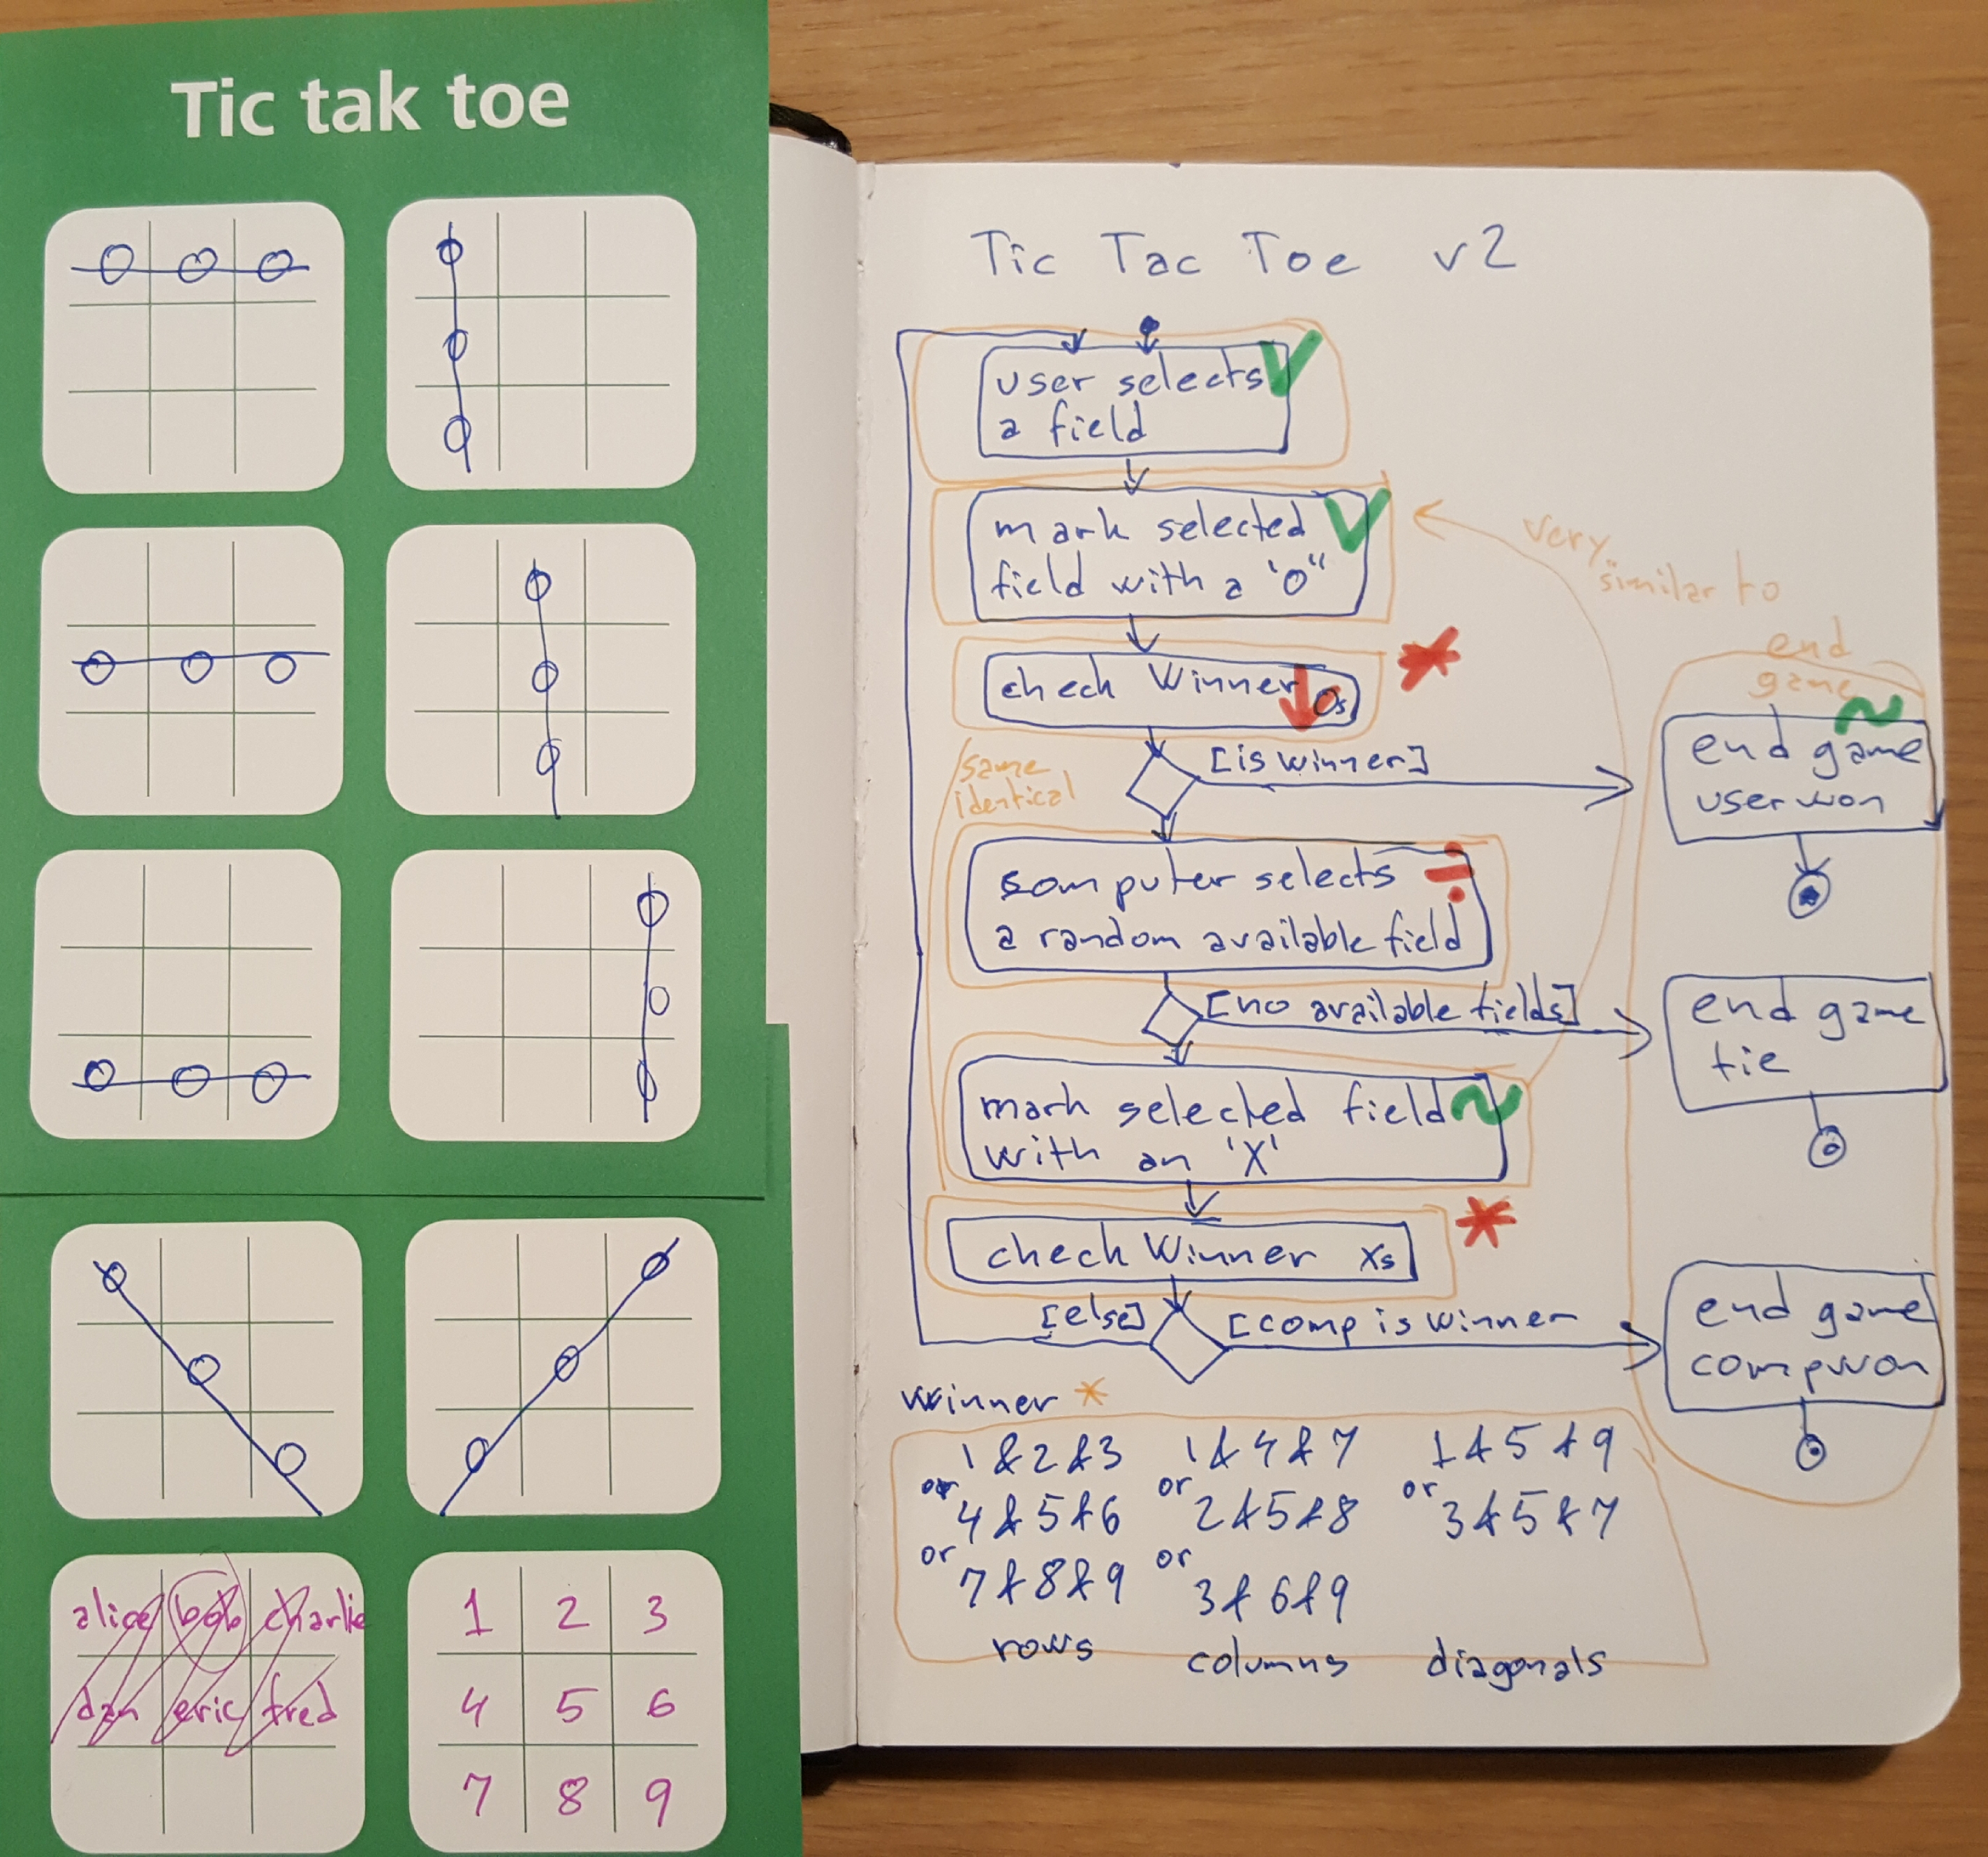 Tic tak toe
alice bob charlie
dan eric fred
1 2 3
4 5 6
7 8 9
Tic Tac Toe v2
user selects
a field
mark selected
field with a 'O"
very
similar to
check Winner Os
[is winner]
same
identical
end
game
end game
user won
somputer selects
a random available field
[no available fields]
end game
tie
mark selected field
with an 'X'
check Winner Xs
[else]
[comp is winner
end game
comp won
winner *
1 & 2 & 3 1 & 4 & 7 1 & 5 & 9
or 4 & 5 & 6 or 2 & 5 & 8 or 3 & 5 & 7
or 7 & 8 & 9 or 3 & 6 & 9
rows columns diagonals